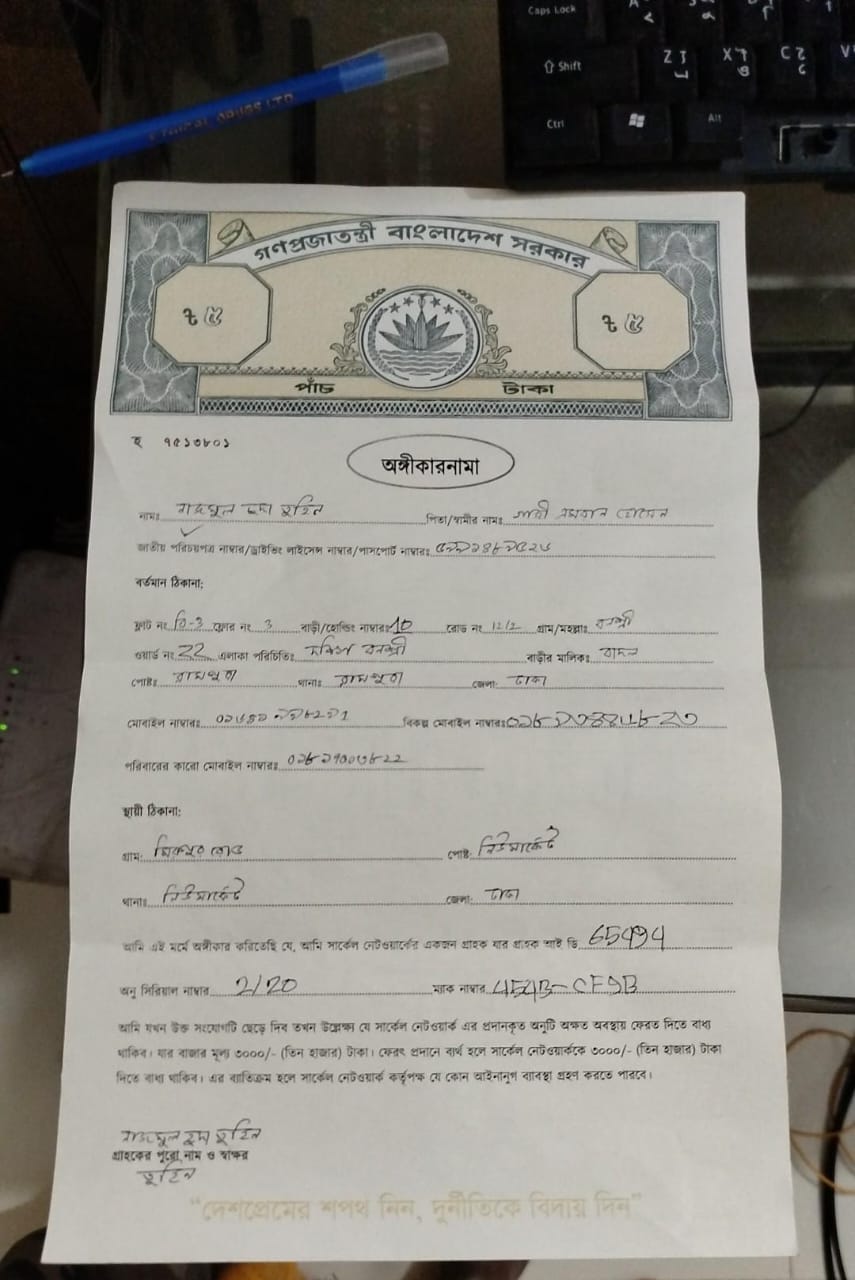 Caps Lock
Shift
Z
X
C
V
Ctrl
Alt
গণপ্রজাতন্ত্রী বাংলাদেশ সরকার
৳ ৫
৳ ৫
পাঁচ টাকা
হ ৭৫১৩৮০১
অঙ্গীকারনামা
নামঃ নাজমুল হুদা তুহিন পিতা/স্বামীর নামঃ হোসেন
জাতীয় পরিচয়পত্র নাম্বার/ড্রাইভিং লাইসেন্স নাম্বার/পাসপোর্ট নাম্বারঃ
বর্তমান ঠিকানা:
ফ্লাট নং বি-3 ফ্লোর নং 3 বাড়ী/হোল্ডিং নাম্বারঃ 10 রোড নং 12/2 গ্রাম/মহল্লাঃ বনশ্রী
ওয়ার্ড নং 22 এলাকা পরিচিতিঃ দক্ষিণ বনশ্রী বাড়ীর মালিকঃ বাদল
পোষ্টঃ রামপুরা থানাঃ রামপুরা জেলা: ঢাকা
মোবাইল নাম্বারঃ বিকল্প মোবাইল নাম্বারঃ
পরিবারের কারো মোবাইল নাম্বারঃ
স্থায়ী ঠিকানা:
গ্রাম: মিরপুর রোড পোষ্ট: নিউমার্কেট
থানাঃ নিউমার্কেট জেলা: ঢাকা
আমি এই মর্মে অঙ্গীকার করিতেছি যে, আমি সার্কেল নেটওয়ার্কের একজন গ্রাহক যার গ্রাহক আই ডি 65494
অনু সিরিয়াল নাম্বার 2/20 ম্যাক নাম্বার 454B-CF9B
আমি যখন উক্ত সংযোগটি ছেড়ে দিব তখন উল্লেক্ষ্য যে সার্কেল নেটওয়ার্ক এর প্রদানকৃত অনুটি অক্ষত অবস্থায় ফেরত দিতে বাধ্য
থাকিব। যার বাজার মূল্য ৩০০০/- (তিন হাজার) টাকা। ফেরৎ প্রদানে ব্যর্থ হলে সার্কেল নেটওয়ার্ককে ৩০০০/- (তিন হাজার) টাকা
দিতে বাধ্য থাকিব। এর ব্যাতিক্রম হলে সার্কেল নেটওয়ার্ক কর্তৃপক্ষ যে কোন আইনানুগ ব্যাবস্থা গ্রহণ করতে পারবে।
নাজমুল হুদা তুহিন
গ্রাহকের পুরো নাম ও স্বাক্ষর
তুহিন
"দেশপ্রেমের শপথ নিন, দুর্নীতিকে বিদায় দিন"